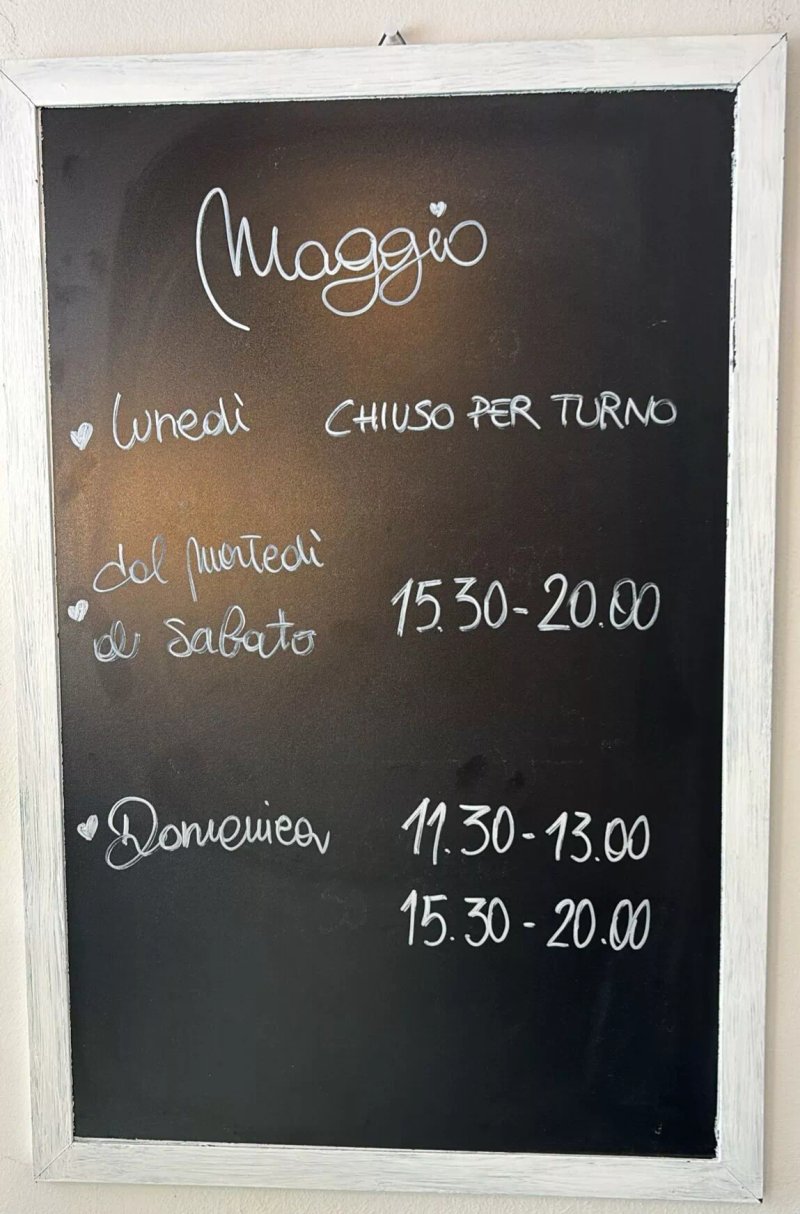 Maggio
lunedì CHIUSO PER TURNO
dal martedì
al sabato 15.30-20.00
Domenica 11.30-13.00
15.30-20.00